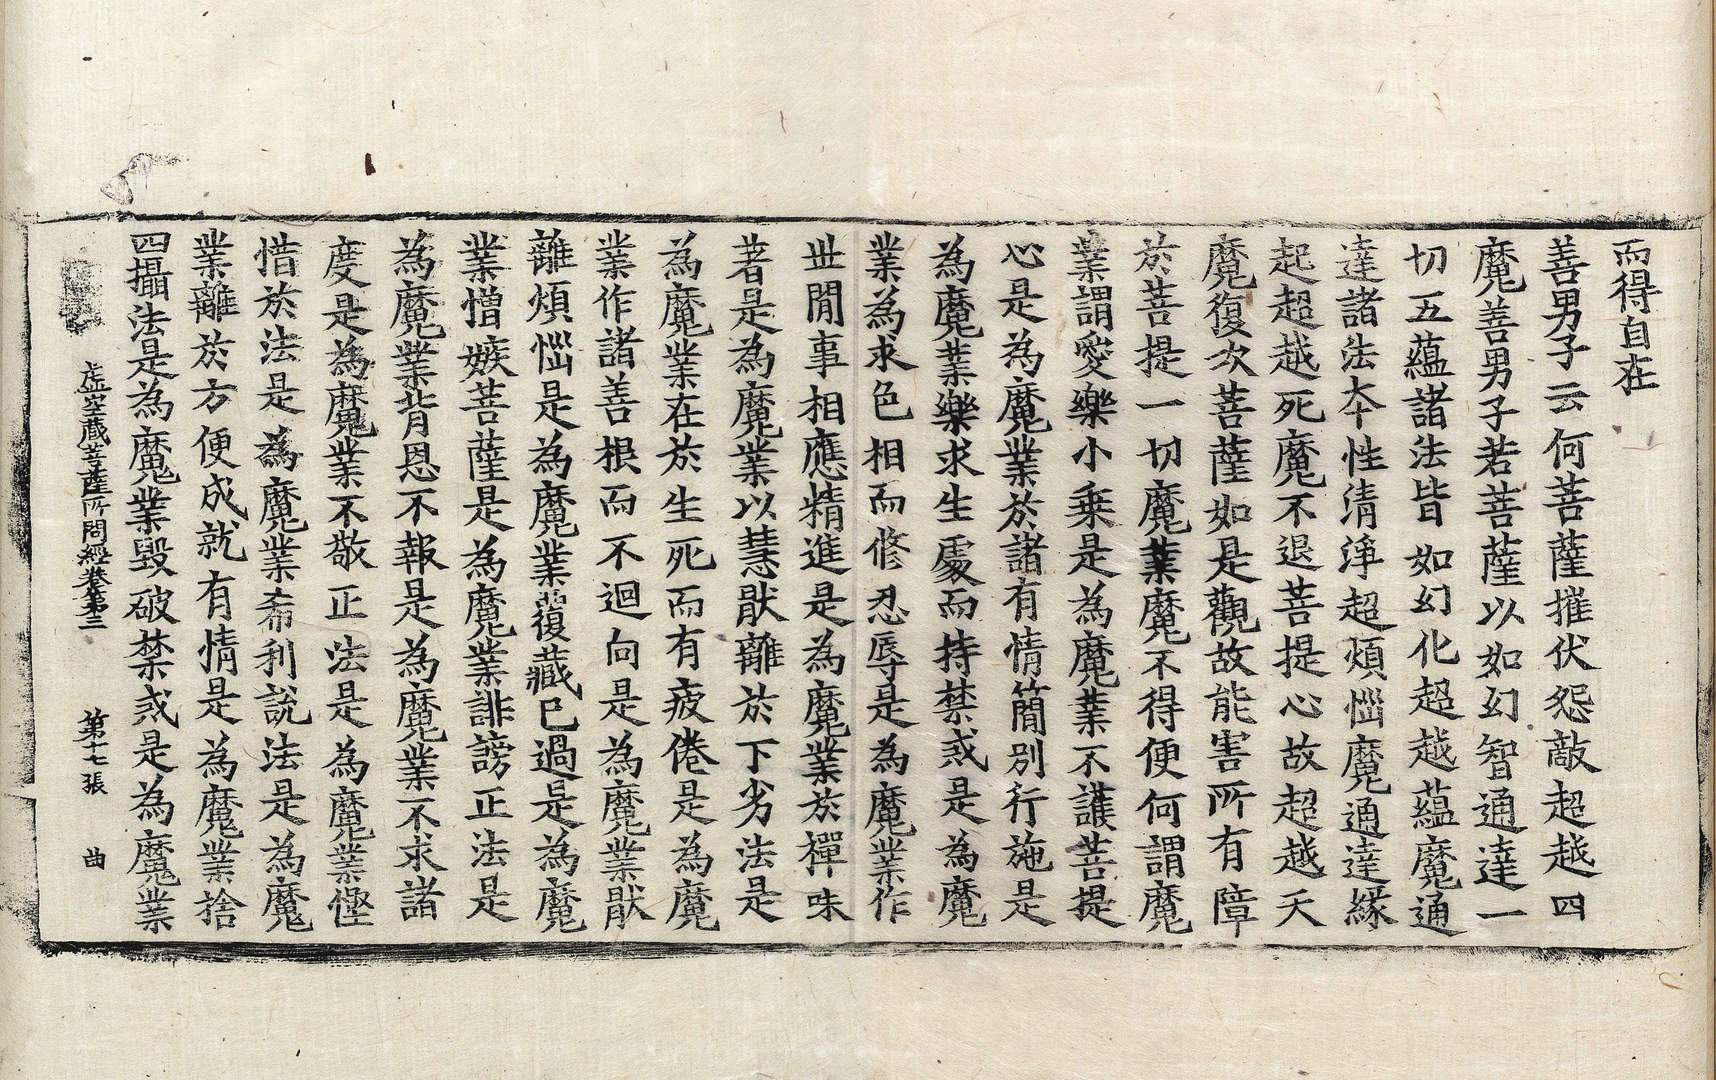 而得自在
善男子云何菩薩摧伏怨敵超越四
魔善男子若菩薩以如幻智通達一
切五蘊諸法皆如幻化超越蘊魔通
達諸法本性清淨超煩惱魔通達緣
起超越死魔不退菩提心故超越天
魔復次菩薩如是觀故能害所有障
於菩提一切魔業魔不得便何謂魔
業謂愛樂小乘是為魔業不護菩提
心是為魔業於諸有情簡別行施是
為魔業樂求生處而持禁戒是為魔
業為求色相而修忍辱是為魔業作
世間事相應精進是為魔業於禪味
著是為魔業以慧猒離於下劣法是
為魔業在於生死而有疲倦是為魔
業作諸善根而不迴向是為魔業猒
離煩惱是為魔業覆藏已過是為魔
業憎嫉菩薩是為魔業誹謗正法是
為魔業背恩不報是為魔業不求諸
度是為魔業不敬正法是為魔業慳
惜於法是為魔業希利說法是為魔
業離於方便成就有情是為魔業捨
四攝法是為魔業毀破禁戒是為魔業
虛空藏菩薩所問經卷第三 第十七張 曲